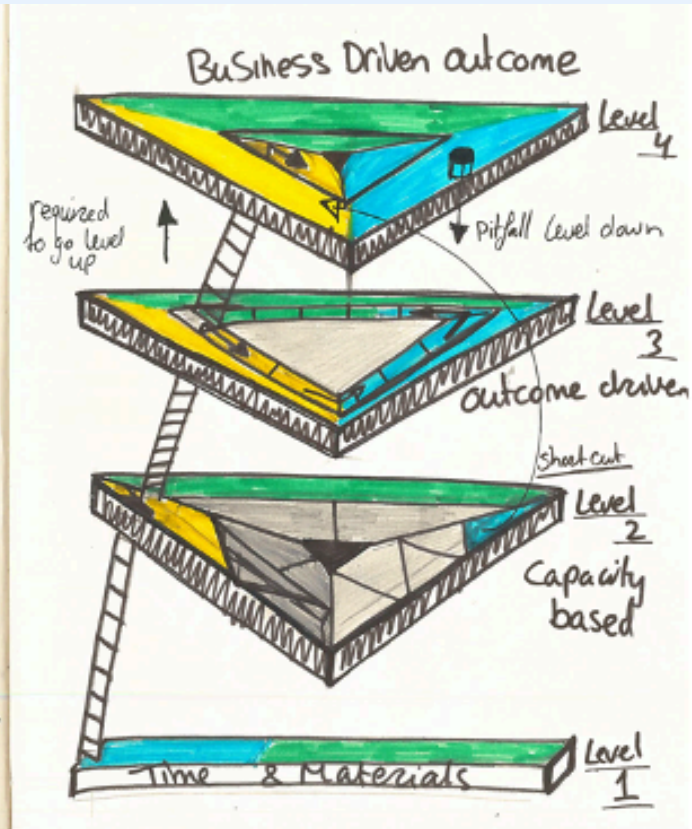 Business Driven outcome
Level
4
required
to go level
up
Pitfall level down
Level
3
outcome driven
shortcut
Level
2
Capacity
based
Time & Materials
Level
1